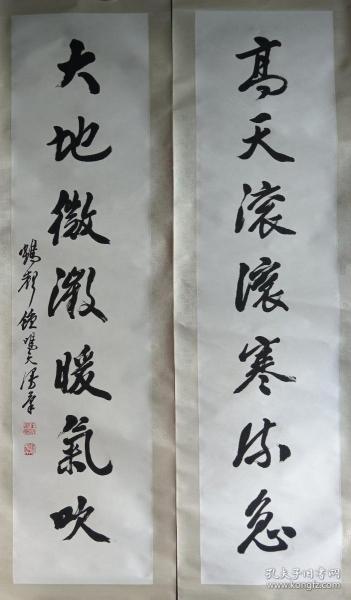 高天滚滚寒流急
大地微微暖氣吹
孔夫子旧书网